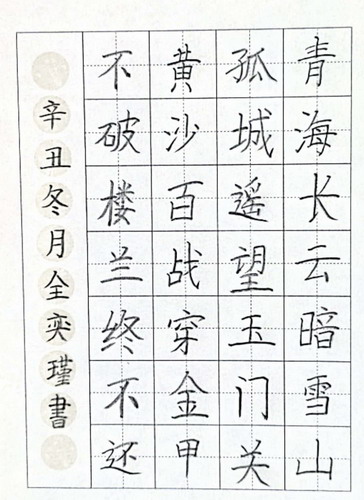 青海长云暗雪山
孤城遥望玉门关
黄沙百战穿金甲
不破楼兰终不还
辛丑冬月全奕瑾書